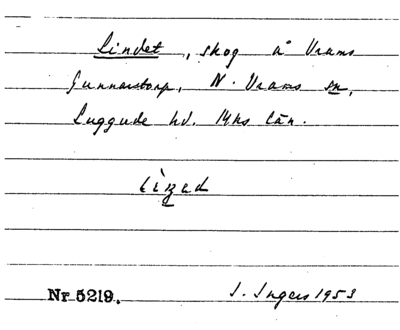 Lindet, skog å Vrams
Gunnarstorp, N. Vrams sn,
Luggude hd. Mhs län.
Nr 5219. I. Ingers 1953